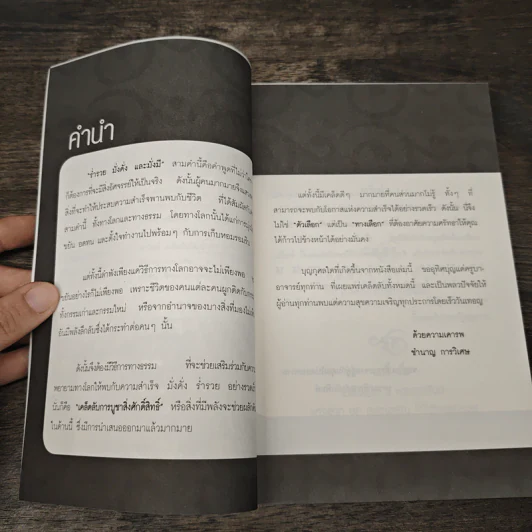 คำนำ
"ร่ำรวย มั่งคั่ง และมั่งมี" สามคำนี้คือคำพูดที่ไม่ว่าใคร
ก็ต้องการที่จะมีสิ่งอัศจรรย์ให้เป็นจริง ดังนั้นผู้คนมากมายจึงแสวง
สิ่งที่จะทำให้ประสบความสำเร็จพานพบกับชีวิต ที่ได้สัมผัส
สามคำนี้ ทั้งทางโลกและทางธรรม โดยทางโลกนั้นได้แก่การ
ขยัน อดทน และตั้งใจทำงานไปพร้อมๆ กับการเก็บหอมรอมริบ
แต่ทั้งนี้ลำพังเพียงแค่วิธีการทางโลกอาจจะไม่เพียงพอ
เป็นอย่างไรก็ไม่เพียงพอ เพราะชีวิตของคนแต่ละคนผูกติดกับ
ทั้งกรรมเก่าและกรรมใหม่ หรือจากอำนาจของบางสิ่งที่มองไม่
อันมีพลังลึกลับซึ่งได้กระทำต่อคนๆ นั้น
ดังนั้นจึงต้องมีวิธีการทางธรรม ที่จะช่วยเสริมร่วมกับความ
พยายามทางโลกให้พบกับความสำเร็จ มั่งคั่ง ร่ำรวย อย่างรวดเร็ว
นั่นก็คือ "เคล็ดลับการบูชาสิ่งศักดิ์สิทธิ์" หรือสิ่งที่มีพลังจะช่วย
ในด้านนี้ ซึ่งมีการนำเสนอออกมาแล้วมากมาย
แต่ทั้งนี้มีเคล็ดดีๆ มากมายที่คนส่วนมากไม่รู้ ทั้งๆ ที่
สามารถจะพบกับโอกาสแห่งความสำเร็จได้อย่างรวดเร็ว ดังนั้น นี่จึง
ไม่ใช่ "ตัวเลือก" แต่เป็น "ทางเลือก" ที่ต้องอาศัยความศรัทธาให้คุณ
ได้ก้าวไปข้างหน้าได้อย่างมั่นคง
บุญกุศลใดที่เกิดขึ้นจากหนังสือเล่มนี้ ขออุทิศบุญแด่ครูบา-
อาจารย์ทุกท่าน ที่เผยแพร่เคล็ดลับทั้งหมดนี้ และเป็นพลวปัจจัยให้
ผู้อ่านทุกท่านพบแต่ความสุขความเจริญทุกประการโดยเร็ววันเทอญ
ด้วยความเคารพ
ชำนาญ การวิเศษ